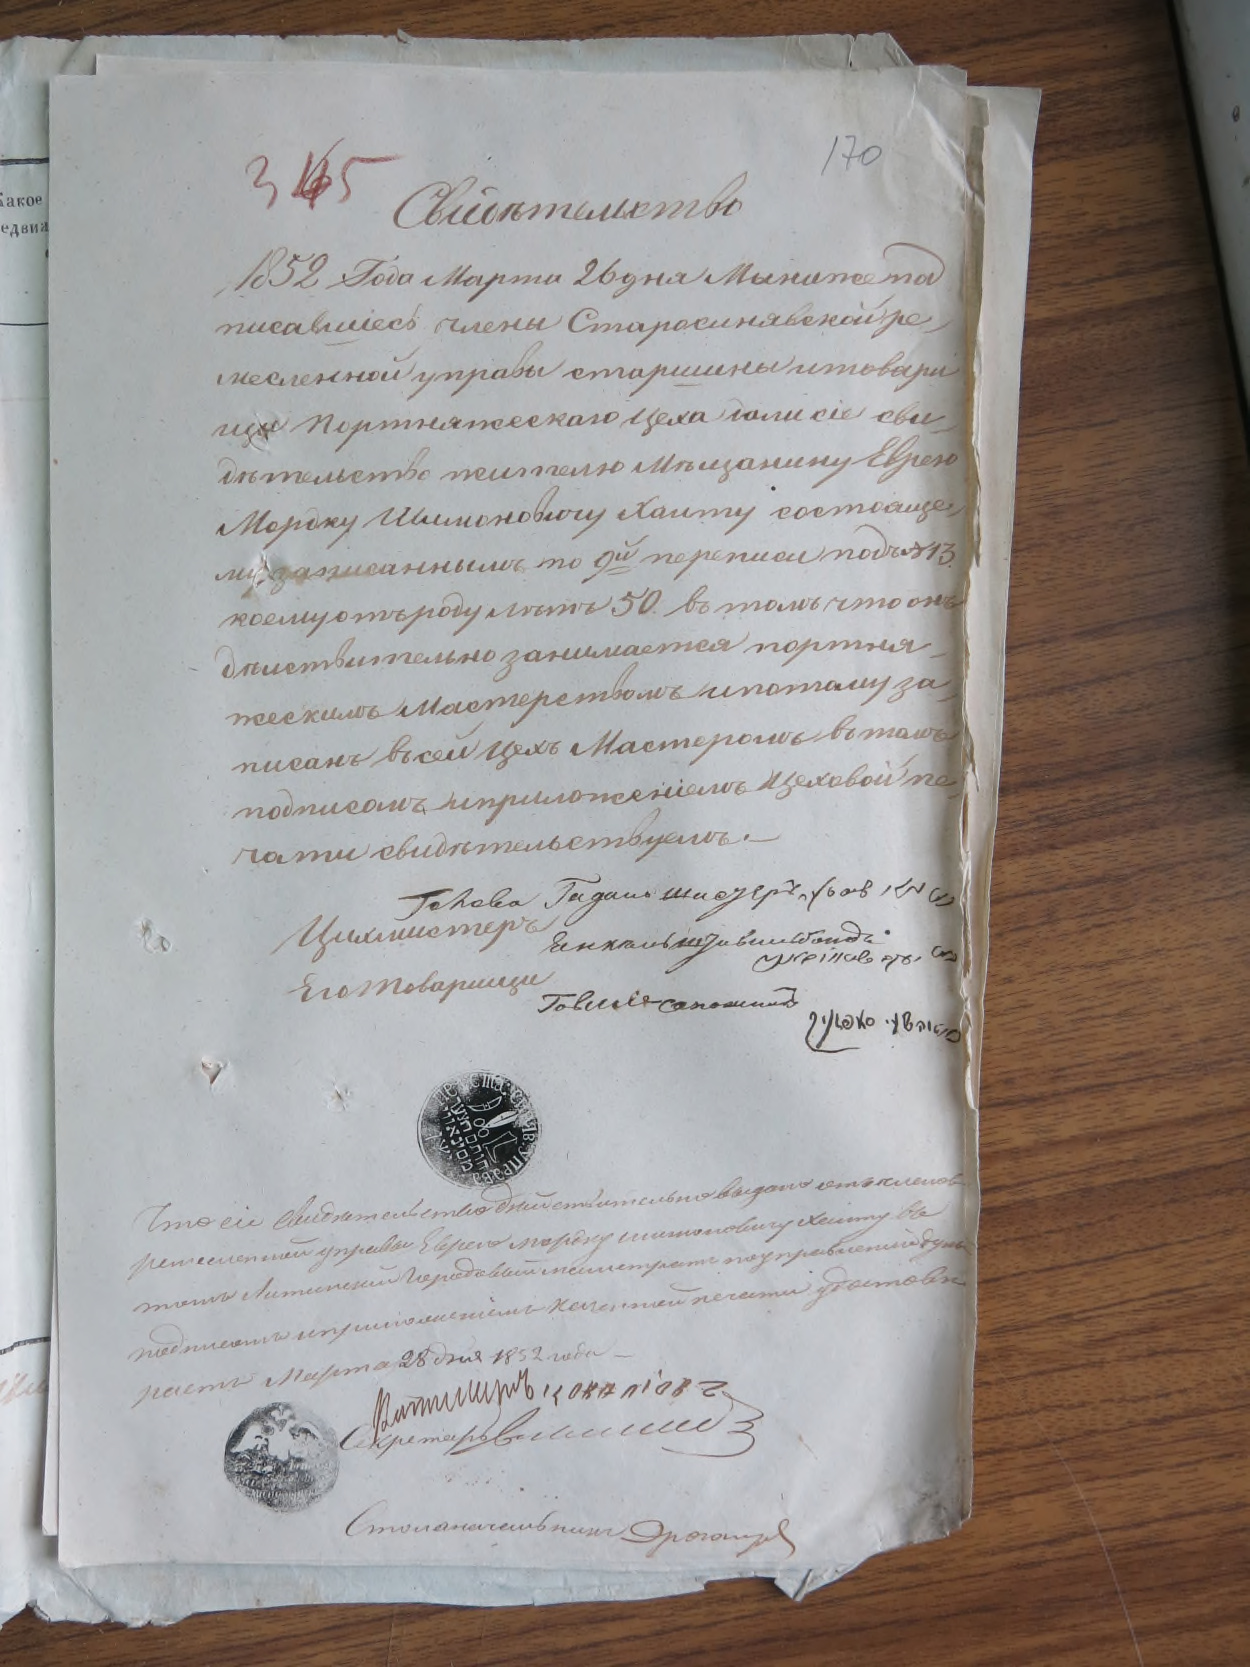 Какое
едвиж
170
3 4 5
Свидѣтельство
1852 Года Марта 26 дня Мы ниже под
писавшіесь члены Старосинявской ре
месленной управы старшины и товари
щи Портняжескаго Цеха дали сіе сви
дѣтельство жителю Мѣщанину Еврею
Мордку Шимоновичу Хаиту состояще
му записаннымъ по 9й переписи подъ № 13
коему отъ роду лѣтъ 50. въ томъ что онъ
дѣиствительно занимается портня
жескимъ Мастерствомъ и потому за
писанъ въ сей Цехъ Мастеромъ въ томъ
подписомъ и приложеніемъ Цеховой пе
чати свидѣтельствуемъ.
Цихмистеръ
Его Товарищи
Что сіе свидѣтельство дѣйствительно выдано отъ членовъ
ремесленной управы Еврею Мордку Шимоновичу Хаиту въ
томъ Литинскій Городовый магистратъ по управленію думы
подписомъ и приложеніемъ казенной печати удостовѣ
ряетъ Марта 28 дня 1852 года
Секретарь
Столоначальникъ